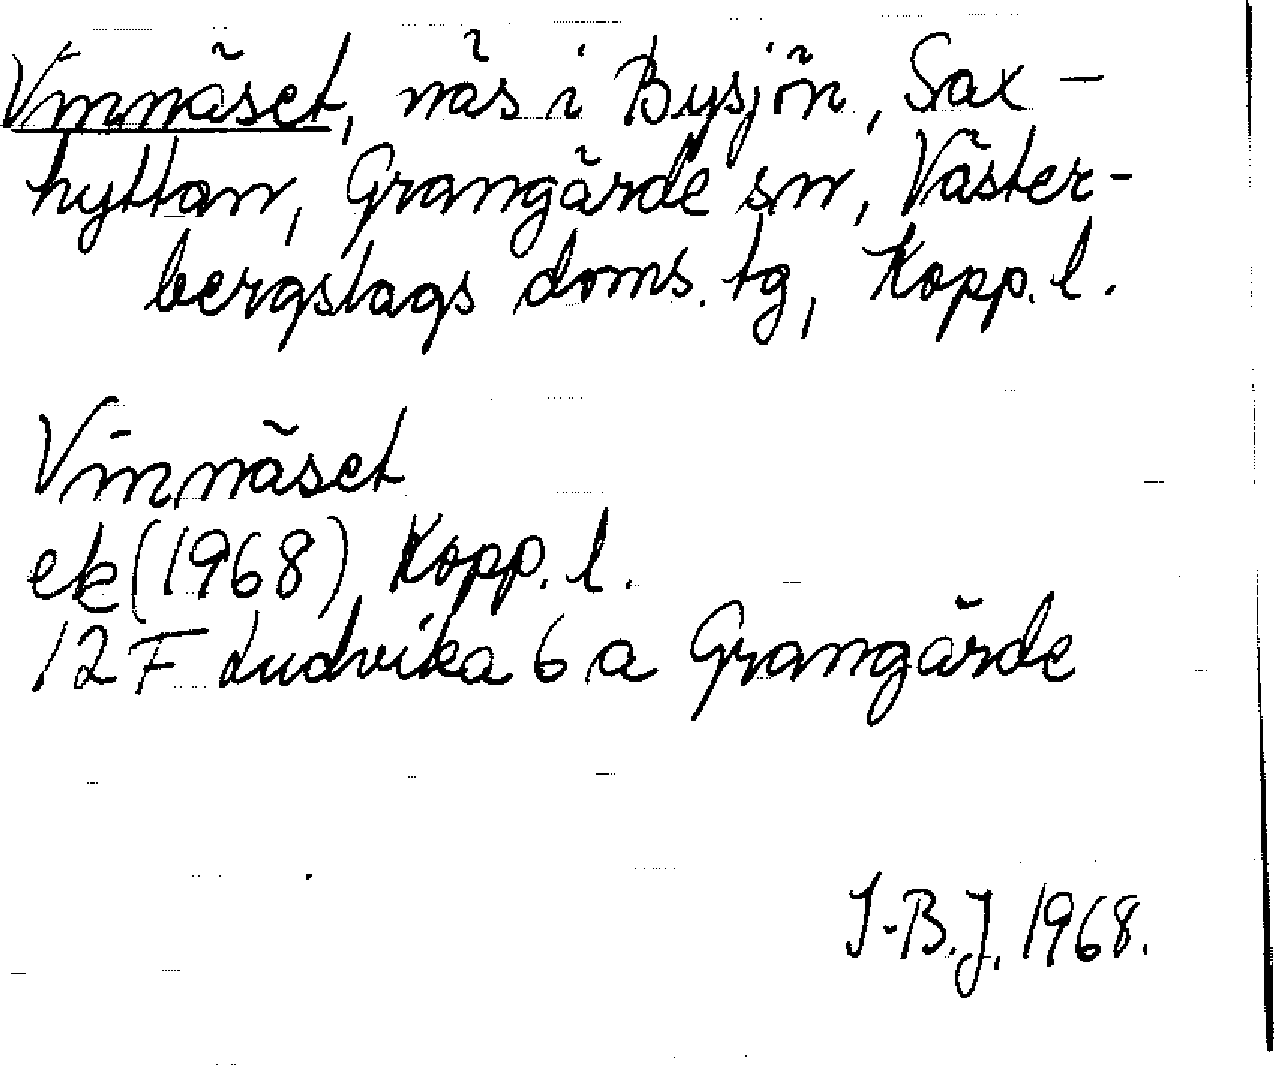 Vinnäset, näs i Bysjön, Sax-
hyttan, Grangärde sn, Väster-
bergslags doms. tg, Kopp. l.
Vinnäset
ek (1968) Kopp. l.
12 F Ludvika 6 a Grangärde
I-B.J. 1968.